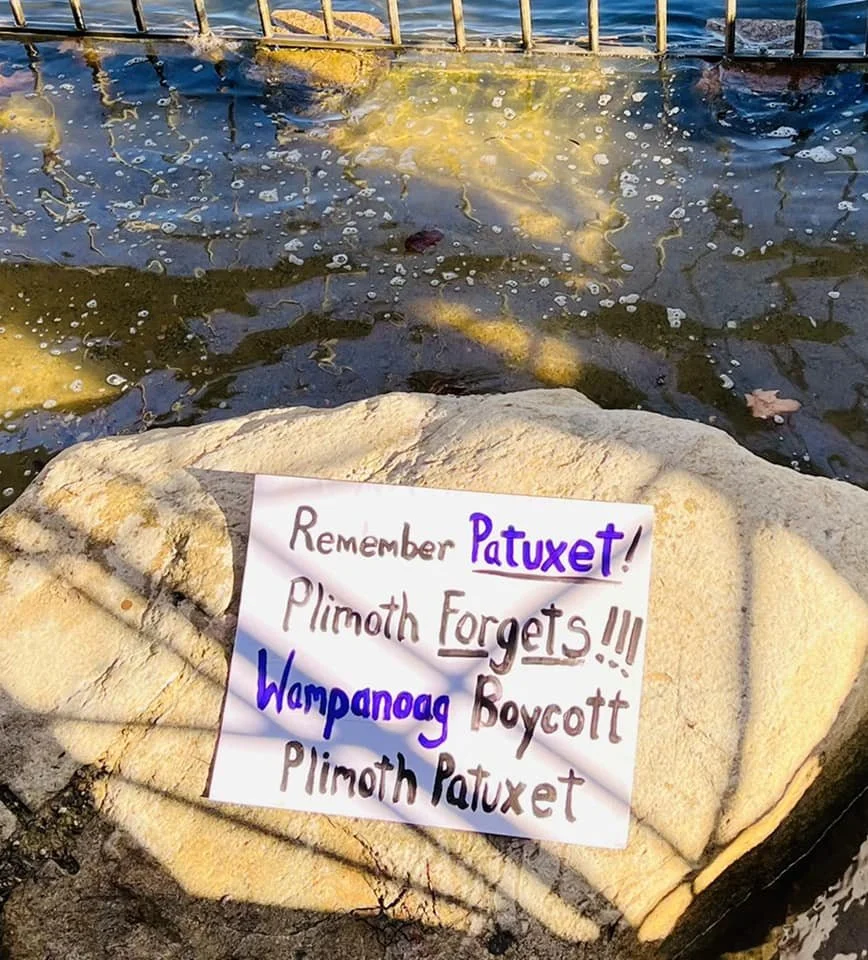 Remember Patuxet!
Plimoth Forgets!!!
Wampanoag Boycott
Plimoth Patuxet